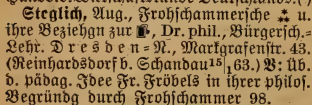 Steglich, Aug., Frohschammersche ⁂ u.
ihre Beziehgn zur , Dr. phil., Bürgersch.-
Lehr. Dresden-N., Markgrafenstr. 43.
(Reinhardsdorf b. Schandau 15/1 63.) V: üb.
d. pädag. Idee Fr. Fröbels in ihrer philos.
Begründg durch Frohschammer 98.